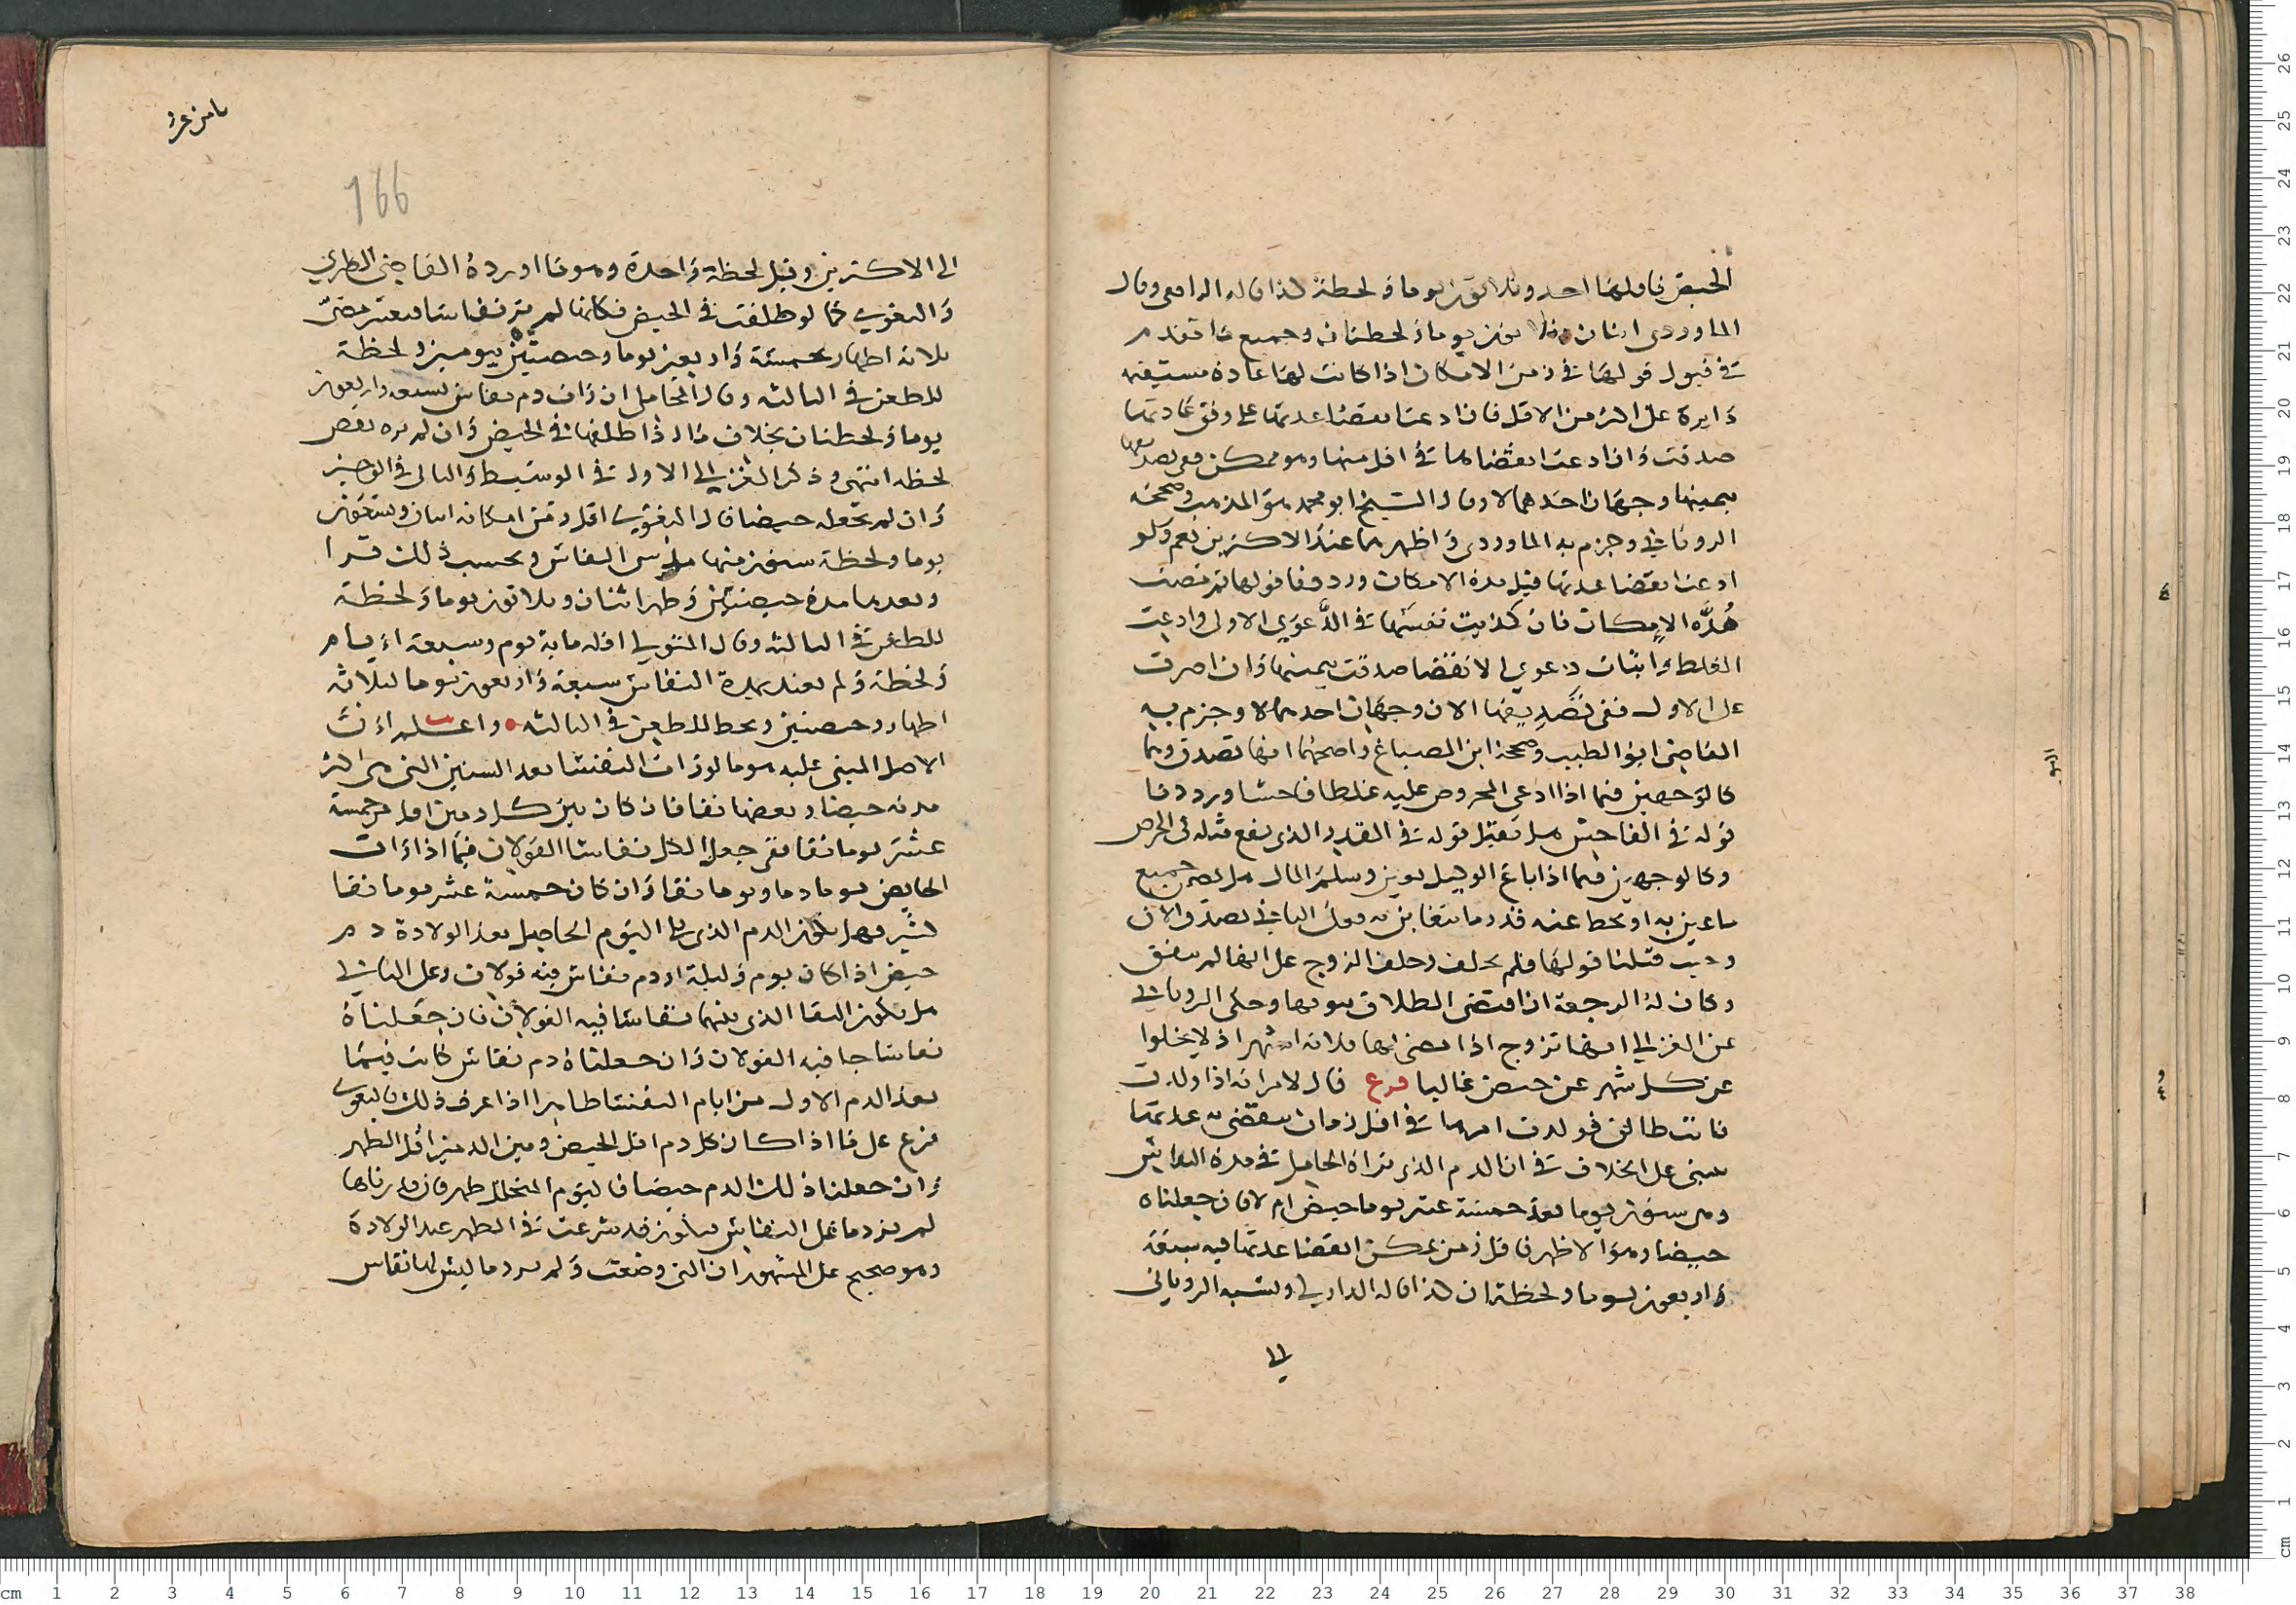 الحيض فاقلها احد وثلاثون يوما ولحظة كذا قاله الرافعي وقال
الماوردي اثنان وثلاثون يوما ولحظتان وجميع ما تقدم
في قبول قولها في زمن الامكان اذا كانت لها عادة مستقيمه
دايرة على اكثر من الاقل فان ادعت انقضا عدتها على وفق عادتها
صدقت وان ادعت انقضاها في اقل منها وهو ممكن ففي تصديقها
بيمينها وجهان احدهما لا وقال الشيخ ابو محمد هو المذهب وصححه
الروياني وجزم به الماوردي واظهرهما عند الاكثرين نعم ولو
ادعت انقضا عدتها قبل مدة الامكان ورددنا قولها ثم مضت
مُدَّة الامكان فان كذبت نفسها في الدَّعوي الاولى وادعت
الغلط واثبات دعوي الانقضا صدقت بيمينها وان اصرت
على الاول ففي تصديقها الان وجهان احدهما لا وجزم به
القاضي ابو الطيب وصححه ابن الصباغ واصحهما انها تصدق وهما
كالوجهين فيما اذا ادعى المخروص عليه غلطا فاحشا ورددنا
قوله في الفاحش هل تقبل قوله في القدر الذي يقع مثله في الخرص
وكالوجهين فيما اذا باع الوكيل بغبن وسلم المال هل يضمن جميع
ما غبن به او يحط عنه قدر ما يتغابن به فعلى الثاني تصدق الان
وحيث قبلنا قولها فلم تحلف وحلف الزوج على انها لم تنقض
وكان له الرجعة ان اقتضى الطلاق ثبوتها وحكى الروياني
عن الغزالي انها تزوج اذا مضى لها ثلاثة اشهر اذ لا يخلوا
عن كل شهر عن حيض غالبا فرع قال لامراته اذا ولدت
فانت طالق فولدت امرها في اقل زمان تنقضي به عدتها
يبنى على الخلاف في ان الدم الذي تراه الحامل في مدة النفاس
وهي ستون يوما بعد خمسة عشر يوما حيض ام لا فان جعلناه
حيضا وهو الاظهر فاقل زمن يمكن انقضا عدتها فيه سبعة
واربعون يوما ولحظتان كذا قاله الداركي ونسبه الروياني
الى
مامن عشر
166
الى الاكثرين وقيل لحظة واحدة وهو ما اورده القاضي الطبري
والبغوي كما لو طلقت في الحيض فكانها لم تر نفاسا فيعتبر مضيّ
ثلاثة اطهار خمسة واربعين يوما وحيضتين يومين ولحظة
للطعن في الثالثه وقال المحاملي ان رات دم نفاس تسعه واربعون
يوما ولحظتان بخلاف ما اذا طلقها في الحيض وان لم تره نقص
لحظه انتهى وذكر الغزالي الاول في الوسيط والثاني في الوجيز
وان لم نجعله حيضا قال البغوي اقل زمن امكانه اثنان وتسعون
يوما ولحظة ستون منها مدة النفاس ويحسب ذلك قرا
وبعدها مدة حيضتين وطهر اثنان وثلاثون يوما ولحظة
للطعن في الثالثه وقال المتولي اقله ماية يوم وسبعة ايام
ولحظة ولم يعتد بمدة النفاس سبعة واربعون يوما لثلاثة
اطهار وحيضتين ولحظ للطعن في الثالثه واعلم ان
الاصل المبني عليه هو ما لو رات النفسا بعد الستين التي هي اكثر
مدته حيضا وبعضها نقا فان كان بين كل دمين اقل من خمسة
عشر يوما نقا ففي جعل الكل نفاسا القولان فيما اذا رات
الحايض يوما دما ويوما نقا وان كان خمسة عشر يوما نقا
كثير فهل يكون الدم الذي يلي اليوم الحاصل بعد الولادة دم
حيض اذا كان يوم وليلة او دم نفاس فيه قولان وعلى الثاني
هل يكون النقا الذي بينهما نفاسا فيه القولان فان جعلناه
نفاسا جا فيه القولان وان جعلناه دم نفاس كانت فيما
بعد الدم الاول من ايام النفسا طاهرا اذا عرف ذلك فالبغوي
فرع على ما اذا كان كل دم اقل الحيض وبين الدمين اقل الطهر
وان جعلنا ذلك الدم حيضا فاليوم المتخلل طهر فان قدرناها
لم تر دما على النفاس يكون قد شرعت في الطهر عند الولادة
وهو صحيح على المشهور ان التي وضعت ولم تر دما ليس لها نفاس